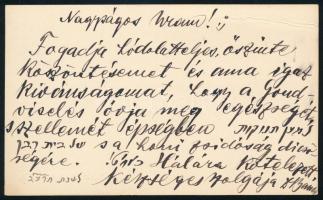 Nagyságos Uram!
Fogadja hódolatteljes, őszinte
köszöntésemet és ama igaz
kivánságomat, hogy a Gond-
viselés óvja meg egészségét
s szellemét épségben
s a honi zsidóság dicső-
ségére. Hálára kötelezett
készséges szolgája